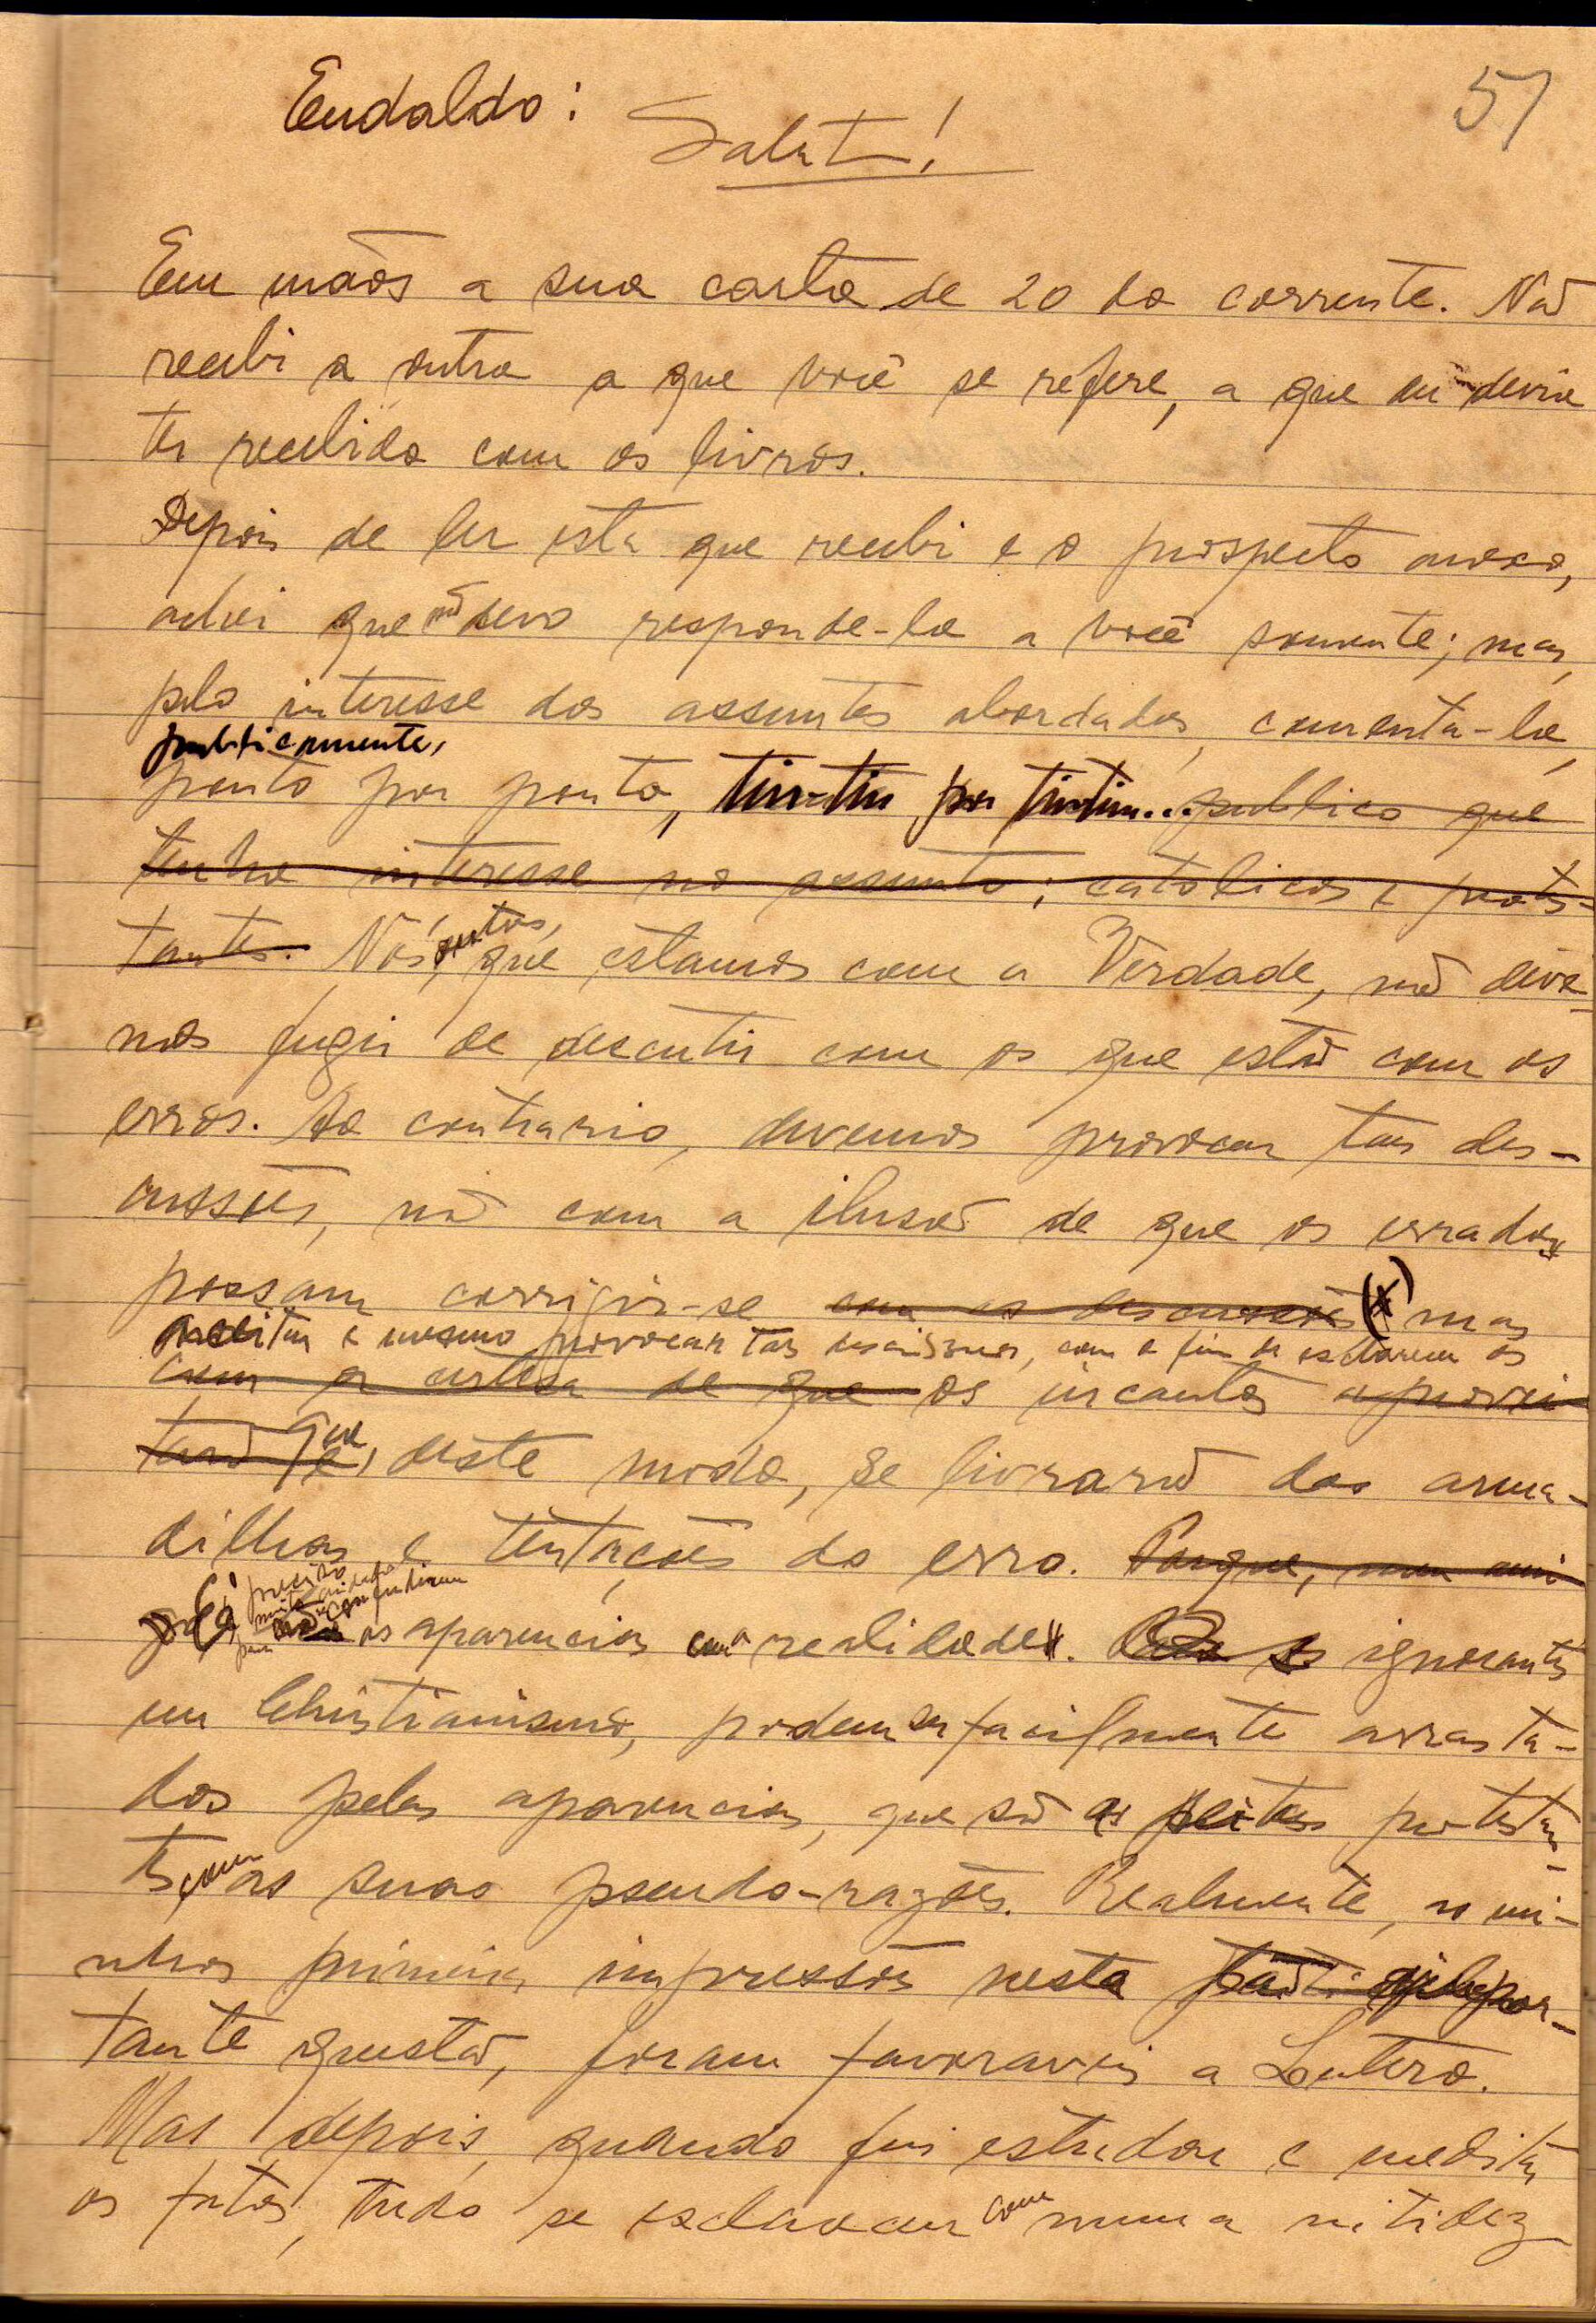 51
Eudaldo:
Salut!
Em mãos a sua carta de 20 do corrente. Não
recebi a outra a que você se refere, a que eu devia
ter recebido com os livros.
Depois de ler esta que recebi e o prospecto anexo,
achei que não devo responde-la a você somente; mas,
pelo interesse dos assuntos abordados, comenta-la,
publicamente,
ponto por ponto, tim-tim por tintim... publico que
tenha interesse no assunto; catolicos e protes-
tantes. Nós, que estamos com a Verdade, não deve-
mos fugir de descutir com os que estão com os
erros. Ao contrario, devemos provocar tais des-
cussões, não com a ilusão de que os errados
possam corrigir-se com as descussões (x) mas
aceitar e mesmo provocar tais descussões, com o fim de esclarecer os
com a certesa de que os incautos aprovei-
tarão que, deste modo, se livrarão das arma-
dilhas e tentações do erro. Porque, meu ami-
go É preciso muito cuidado para não confundirem as aparencias com a realidade. ignorantes
em Christianismo, podem ser facilmente arrasta-
dos pelas aparencias, que são as seitas protestan-
tes, com as suas pseudo-razões. Realmente, as mi-
nhas primeiras impressões nesta
tante questão, foram favoraveis a Lutero.
Mas, depois, quando fui estudar e meditar
os fatos, tudo se esclareceu com numa nitidez